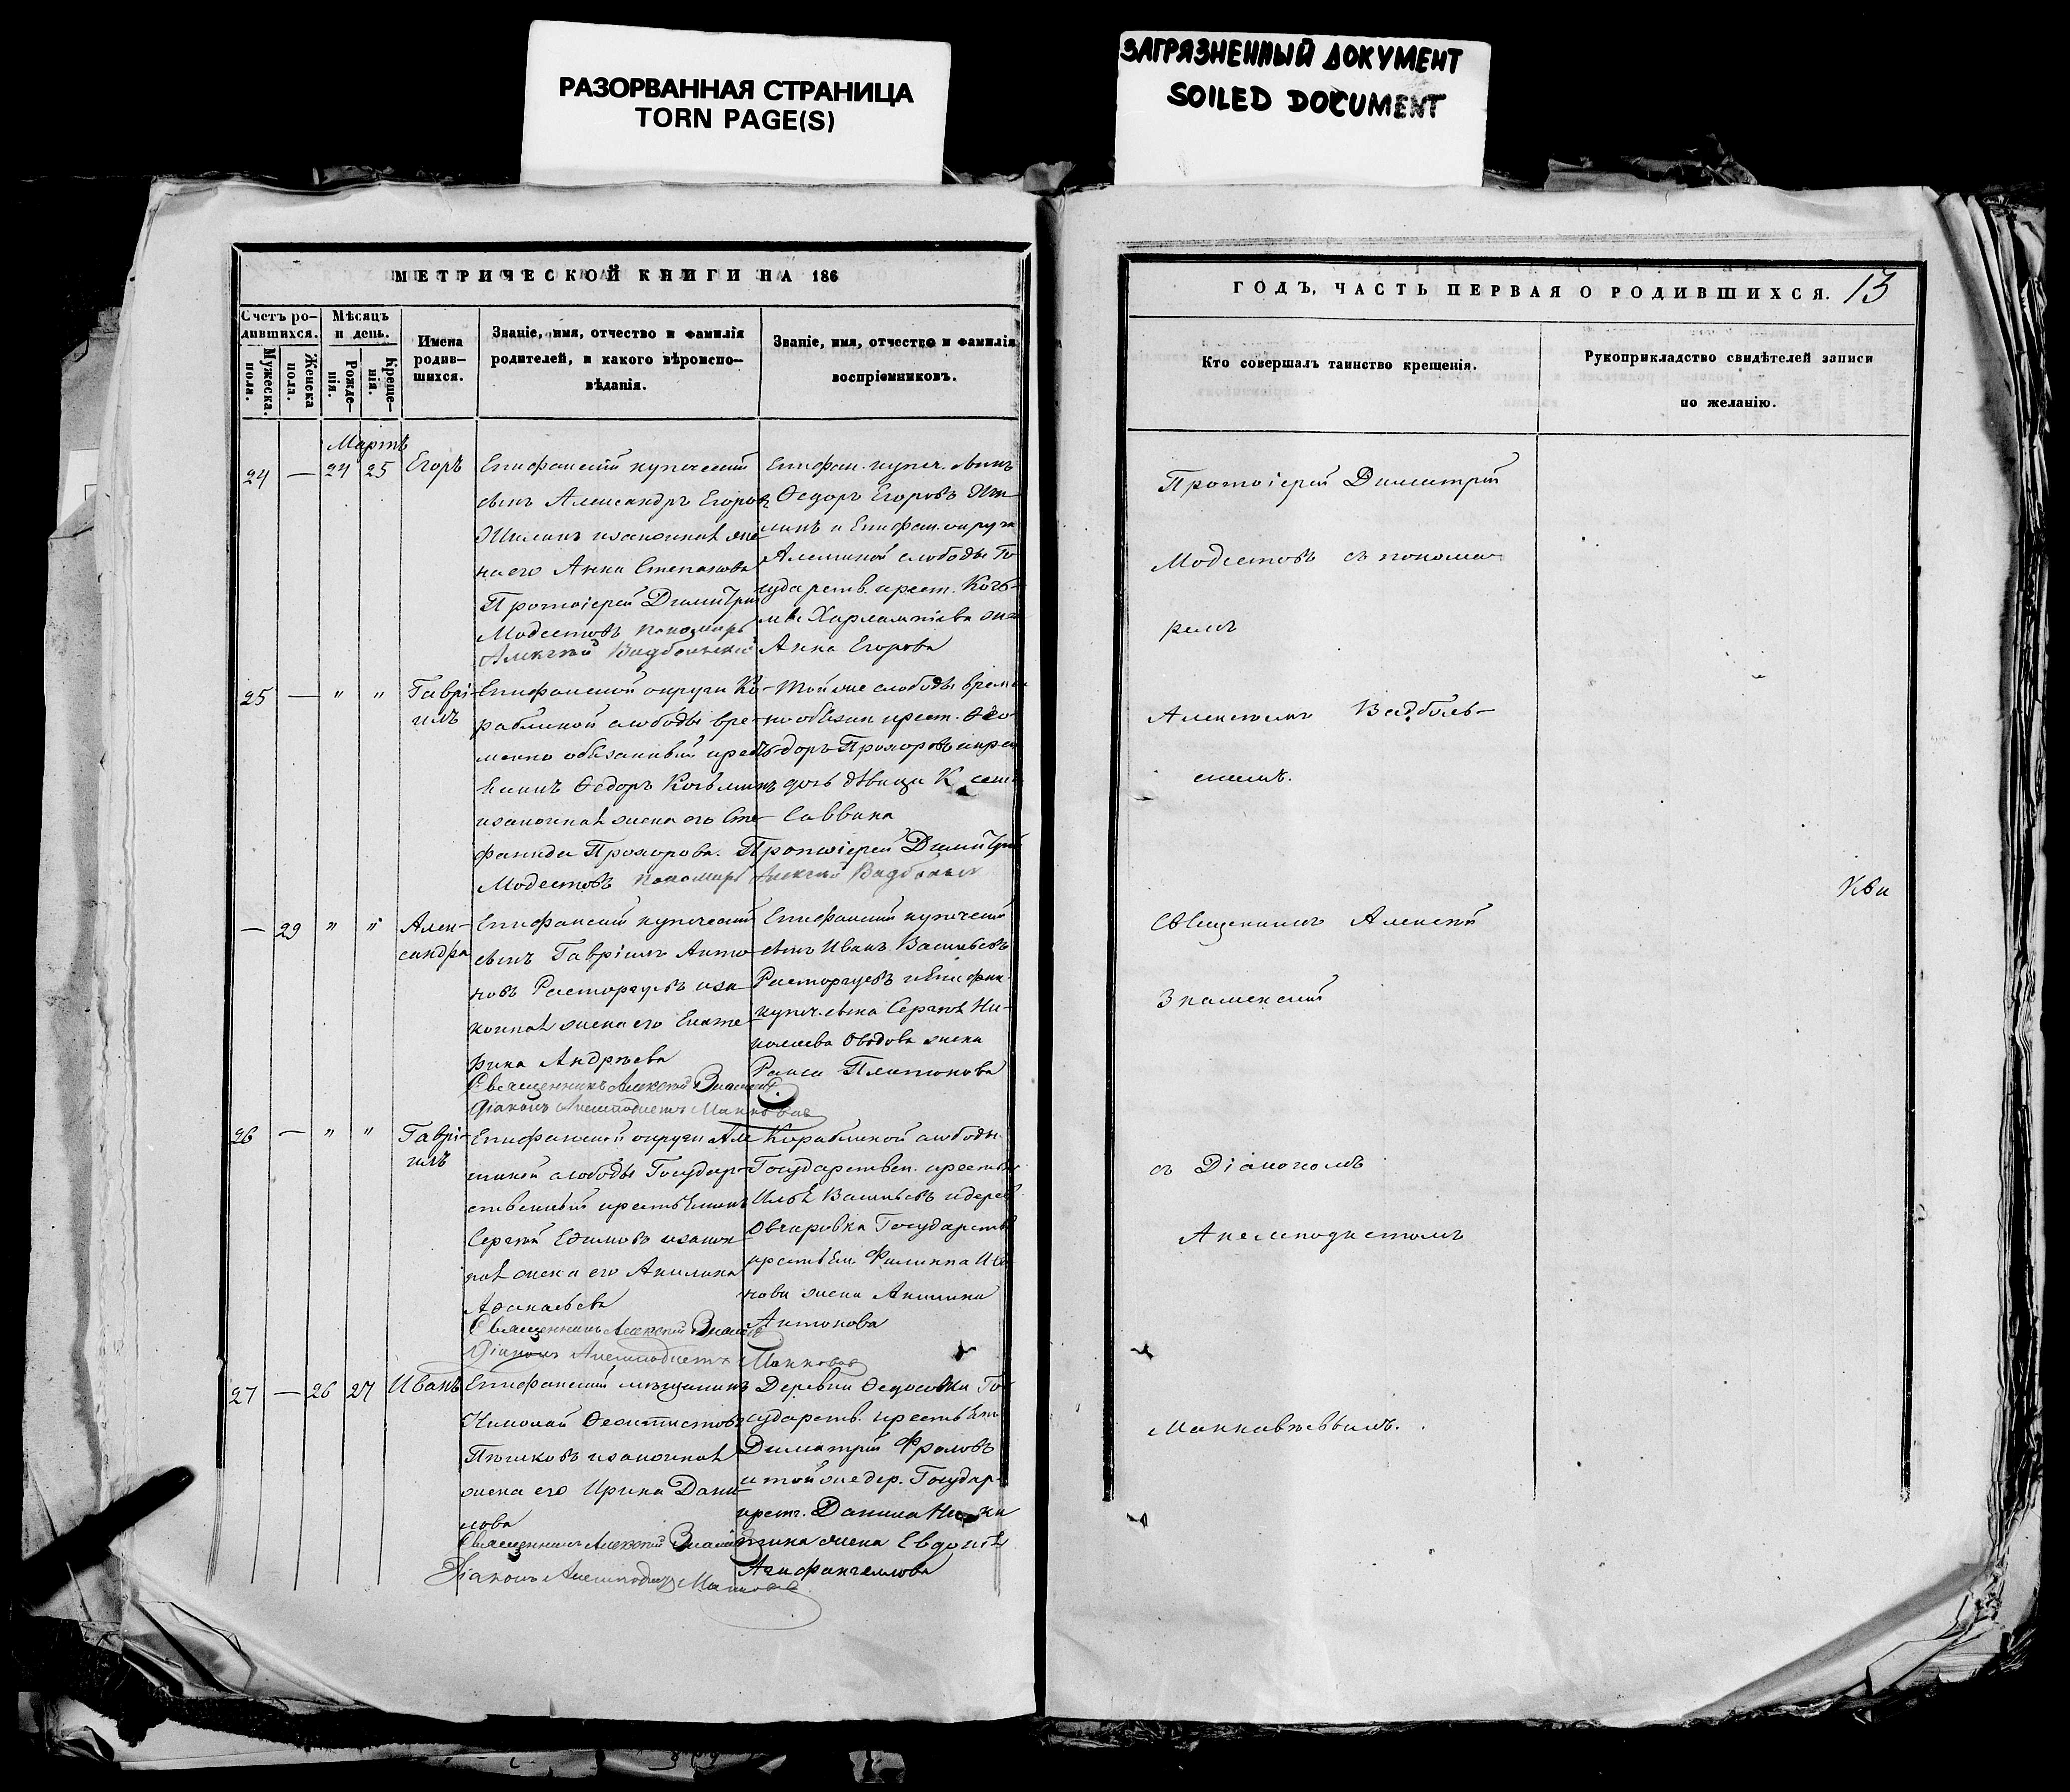 РАЗОРВАННАЯ СТРАНИЦА
TORN PAGE(S)
ЗАГРЯЗНЕННЫЙ ДОКУМЕНТ
SOILED DOCUMENT
МЕТРИЧЕСКОЙ КНИГИ НА 186
Счетъ ро-
дившихся.
Мужеска.
пола.
Женска
пола.
Мѣсяцъ
и день.
Рожде-
нія.
Креще-
нія.
Имена
родив-
шихся.
Званіе, имя, отчество и фамилія
родителей, и какого вѣроиспо-
вѣданія.
Званіе, имя, отчество и фамилія
воспріемниковъ.
Мартъ
24 — 24 25 Егоръ
Епифанскій купеческій
сынъ Александръ Егоровъ
и законная же-
на его Анна Степанова
Протоіерей Димитрій
Модестовъ пономарь
Алексѣй Вадбольскій
Епифан. купеч. сынъ
Ѳедоръ Егоровъ
и Епифан. округи
слободы Го-
сударств. крест. Козь-
мы Харлампіева жена
Анна Егорова
25 — " " Гаврі-
илъ
Епифанской округи Ко-
раблиной слободы вре-
менно обязанный кресть-
янинъ Ѳедоръ Козьминъ
и законная жена его Сте-
фанида Прохорова.
Той же слободы времен-
но обязан. крест. Ѳео-
доръ Прохоровъ и крест
дочь дѣвица
Саввина
Протоіерей Димитрій
Модестовъ пономарь Алексѣй Вадбольскій
— 29 " " Алек-
сандра
Епифанскій купеческій
сынъ Гавріилъ Анто-
новъ Расторгуевъ и за-
конная жена его Екате-
рина Андреева
Священникъ Алексѣй Знаменск
Діаконъ Анемподистъ Манковъ
Епифанскій купеческій
сынъ Иванъ Васильевъ
Расторгуевъ и Епифан.
купеч. сына Сергѣя Ни-
колаева Оводова жена
Раиса Платонова
26 — " " Гаврі-
илъ
Епифанской округи
слободы Государ-
ственный крестьянинъ
Сергѣй Ефимовъ и закон-
ная жена его Акилина
Аѳанасьева
Священникъ Алексѣй Знаменск
Діаконъ Анемподистъ Манковъ
Кораблиной слободы
Государствен. крестьян
Илья Васильевъ и дерев
Овчаровка Государств
крестьян. Филиппа Ива
нова жена Акилина
Антонова
27 — 26 27 Иванъ
Епифанскій мѣщанинъ
Николай Ѳеоктистовъ
Пѣшковъ и законная
жена его Ирина Дани-
лова
Священникъ Алексѣй Знаменск
Діаконъ Анемподистъ Манковъ
Деревни Ѳедосовки Го-
сударств. крестьян.
Димитрій Фроловъ
и той же дер. Государ-
крест. Данила Ники
тина жена Евдокія
Агафангелова
ГОДЪ, ЧАСТЬ ПЕРВАЯ О РОДИВШИХСЯ.
13
Кто совершалъ таинство крещенія.
Рукоприкладство свидѣтелей записи
по желанію.
Протоіерей Димитрій
Модестовъ съ понома-
ремъ
Алексѣемъ Вадболь-
скимъ.
Священникъ Алексѣй
Знаменскій
съ Діакономъ
Анемподистомъ